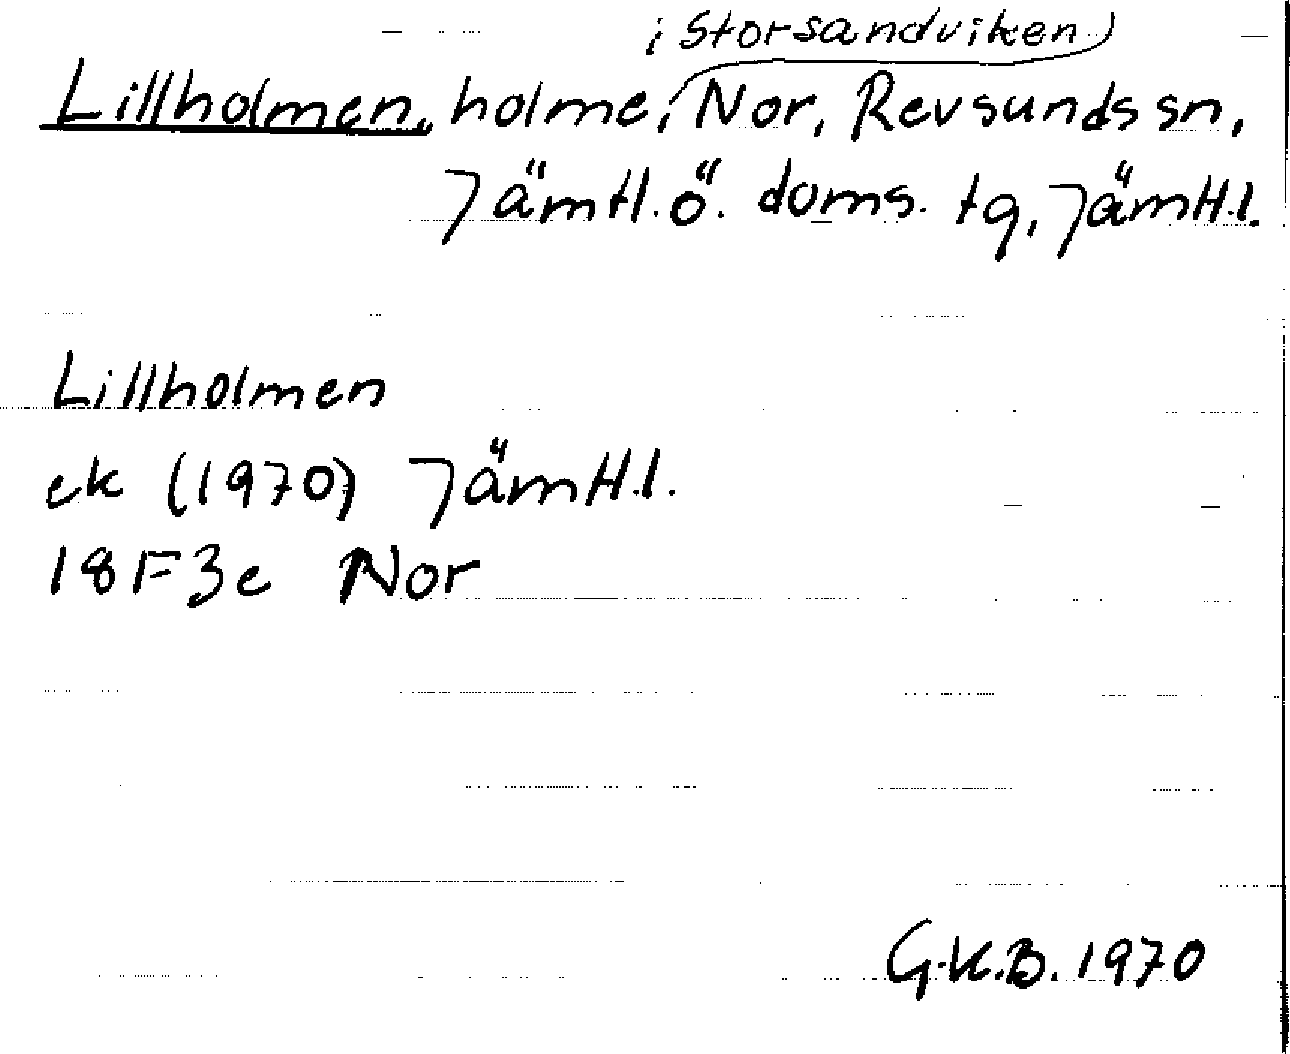 i Storsandviken
Lillholmen, holme, Nor, Revsunds sn,
Jämtl. ö. doms. tg, Jämtl. l.
Lillholmen
ek (1970) Jämtl. l.
18F3e Nor
G.K.B. 1970